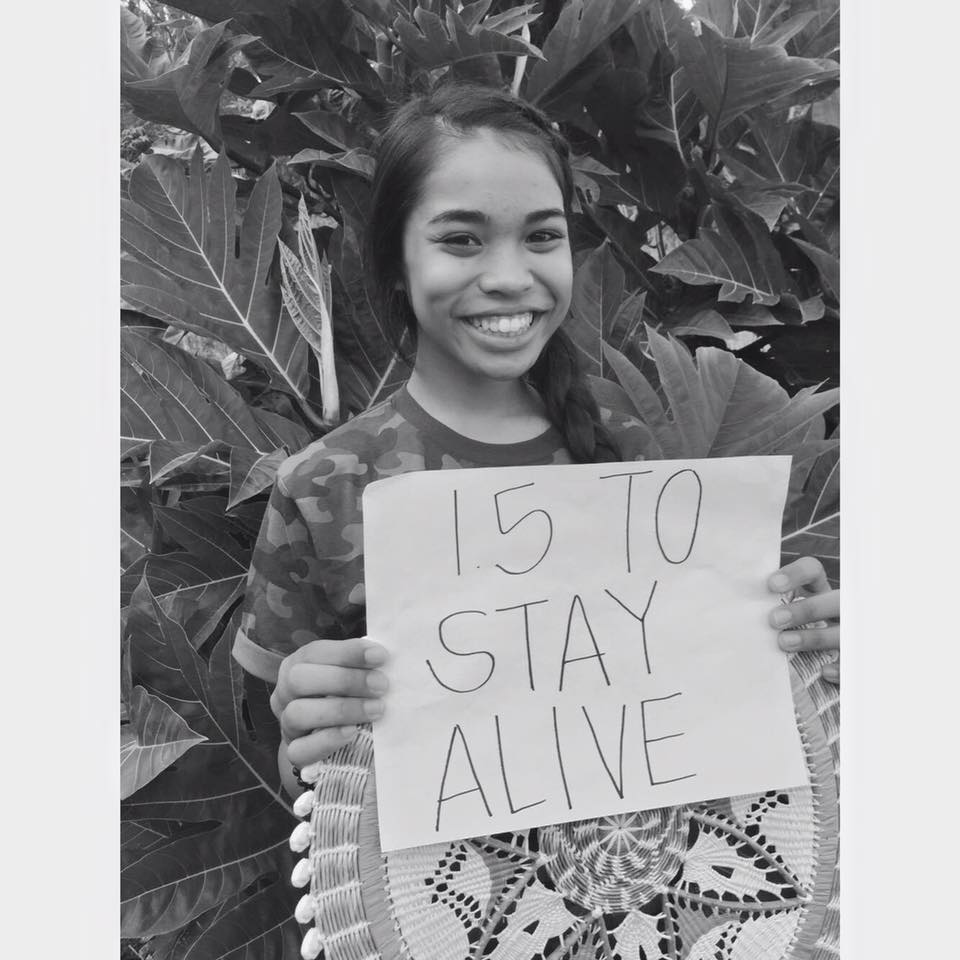 1.5 TO
STAY
ALIVE